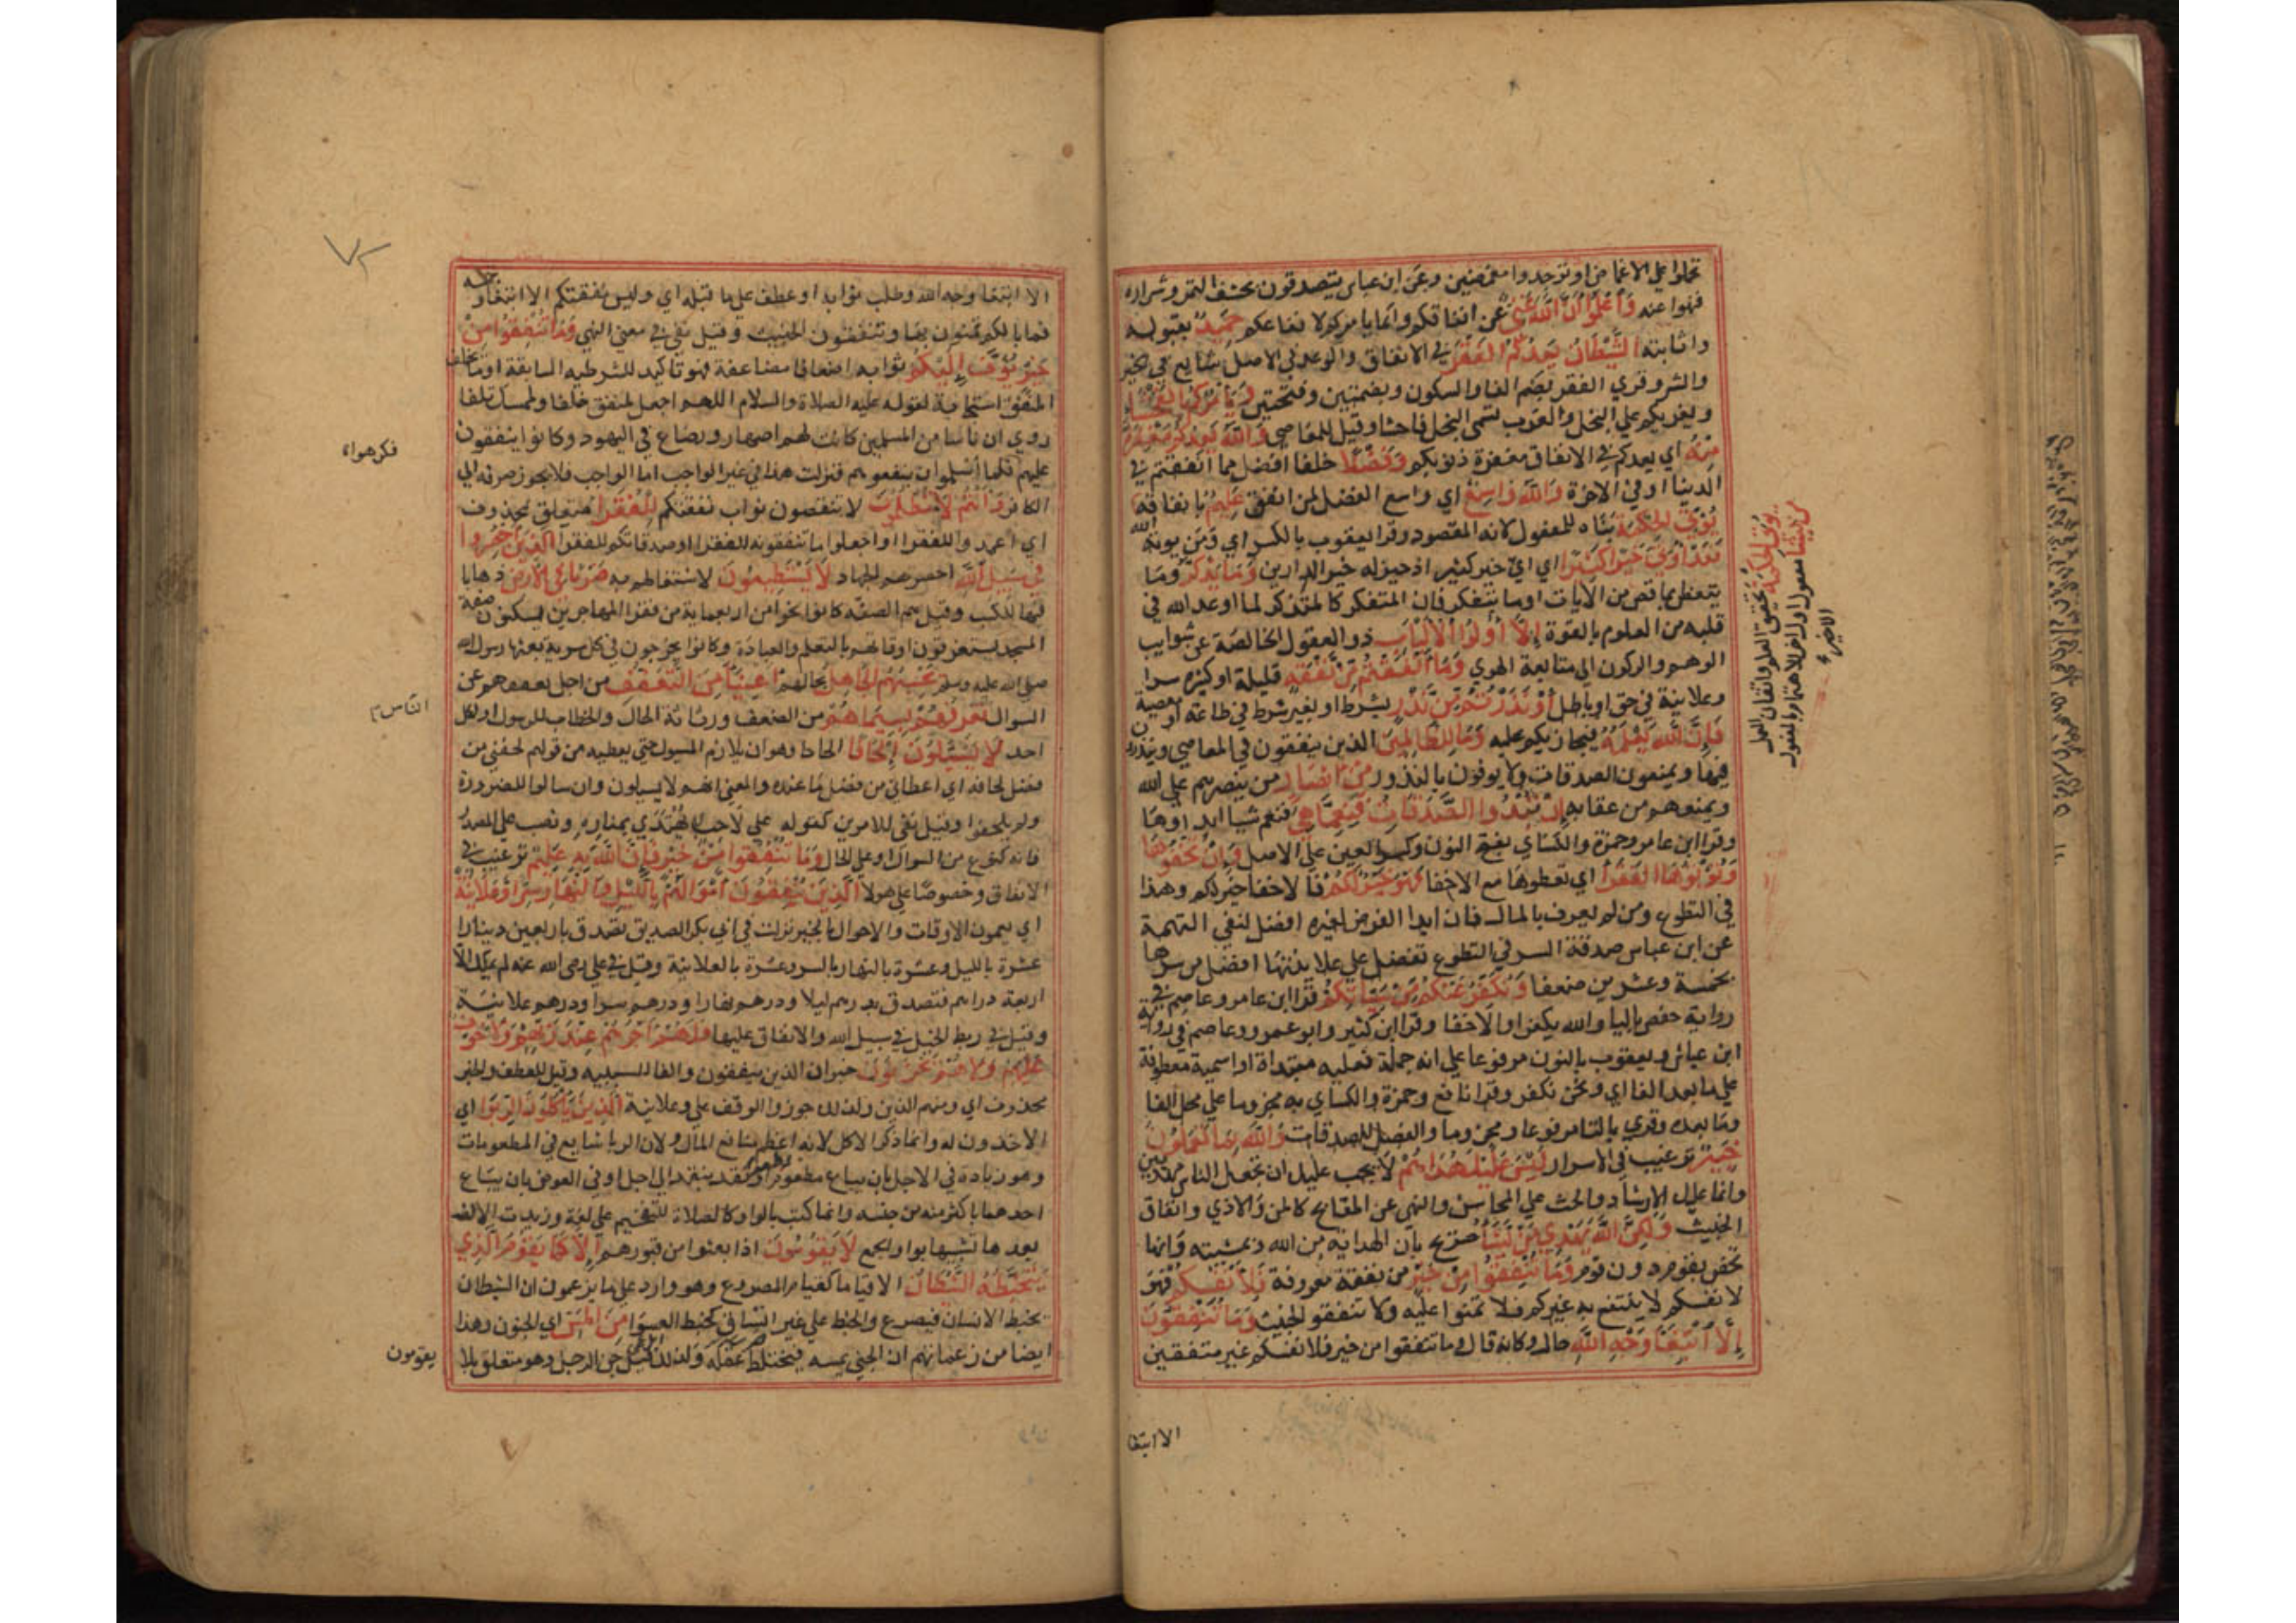 تحملوا على الاغماض او توجدوا مغمضين وعن ابن عباس يتصدقون بحشف التمر وشراره
فنهوا عنه وَاعْلَمُوا أَنَّ اللَّهَ غَنِيٌّ عن انفاقكم وانما يامركم لانتفاعكم حَمِيدٌ بقبوله
واثابته الشَّيْطَانُ يَعِدُكُمُ الْفَقْرَ في الانفاق والوعد في الاصل شايع في الخير
والشر وقري الفقر بضم الفا والسكون وبضمتين وفتحتين وَيَأْمُرُكُمْ بِالْفَحْشَاءِ
ويغريكم على البخل والعرب تسمى البخل فاحشا وقيل المعاصي وَاللَّهُ يَعِدُكُمْ مَغْفِرَةً
مِنْهُ اي يعدكم في الانفاق مغفرة ذنوبكم وَفَضْلًا خلفا افضل مما انفقتم في
الدنيا او في الاخرة وَاللَّهُ وَاسِعٌ اي واسع الفضل لمن انفق عَلِيمٌ بانفاقه
يُؤْتَى الحِكْمَةَ بناه للمفعول لانه المقصود وقرا يعقوب بالكسر اي ومن يوته الله
فَقَدْ أُوتِيَ خَيْرًا كَثِيرًا اي اي خير كثير اذ حيز له خير الدارين وَمَا يَذَّكَّرُ وما
يتعظ بما قص من الايات او ما يتفكر فان المتفكر كالمتذكر لما اودع الله في
قلبه من العلوم بالقوة إِلَّا أُولُوا الْأَلْبَابِ ذوو العقول الخالصة عن شوايب
الوهم والركون الى متابعة الهوي وَمَا أَنْفَقْتُمْ مِنْ نَفَقَةٍ قليلة او كثيرة سرا
وعلانية في حق او باطل أَوْ نَذَرْتُمْ مِنْ نَذْرٍ بشرط او بغير شرط في طاعة او معصية
فَإِنَّ اللَّهَ يَعْلَمُهُ فيجازيكم عليه وَمَا لِلظَّالِمِينَ الذين ينفقون في المعاصي وينذرون
فيها ويمنعون الصدقات ولا يوفون بالنذور مِنْ أَنْصَارٍ من ينصرهم على الله
ويمنعهم من عقابه إِنْ تُبْدُوا الصَّدَقَاتِ فَنِعِمَّا هِيَ فنعم شيا ابداوها
وقرا ابن عامر وحمزة والكساي بفتح النون وكسر العين على الاصل وَإِنْ تُخْفُوهَا
وَتُؤْتُوهَا الْفُقَرَاءَ اي تعطوها مع الاخفا فَهُوَ خَيْرٌ لَكُمْ فالاخفا خير لكم وهذا
في التطوع ومن لم يعرف بالمال فان ابدا الفرض لغيره افضل لنفي التهمة
عن ابن عباس صدقة السر في التطوع تفضل على علانيتها افضل من سرها
بخمسة وعشرين ضعفا وَنُكَفِّرُ عَنْكُمْ مِنْ سَيِّئَاتِكُمْ قرا ابن عامر وعاصم في
رواية حفص باليا والله يكفر او الاخفا وقرا ابن كثير وابو عمرو وعاصم في رواية
ابن عياش ويعقوب بالنون مرفوعا على انه جملة فعليه مبتداة او اسمية معطوفة
على ما بعد الفا اي ونحن نكفر وقرا نافع وحمزة والكساي به مجزوما على محل الفا
وما بعده وقري بالتا مرفوعا ومجزوما والفعل للصدقات وَاللَّهُ بِمَا تَعْمَلُونَ
خَبِيرٌ ترغيب في الاسرار لَيْسَ عَلَيْكَ هُدَاهُمْ لا يجب عليك ان تجعل الناس مهديين
وانما عليك الارشاد والحث على المحاسن والنهي عن المقابح كالمن والاذي وانفاق
الخبيث وَلَكِنَّ اللَّهَ يَهْدِي مَنْ يَشَاءُ صريح بان الهداية من الله وبمشيته وانها
تخص بقوم دون قوم وَمَا تُنْفِقُوا مِنْ خَيْرٍ من نفقة معروفة فَلِأَنْفُسِكُمْ فهو
لانفسكم لا ينتفع به غيركم فلا تمنوا عليه ولا تنفقوا الخبيث وَمَا تُنْفِقُونَ
إِلَّا ابْتِغَاءَ وَجْهِ اللَّهِ حال وكانه قال وما تنفقوا من خير فلانفسكم غير منفقين
يؤتي الحكمة تحقيق العلم واتقان العمل
من يشا مفعول اول اخر للاهتمام بالمفعول
الاخير
الا ابتغا
الا ابتغا وجه الله وطلب ثوابه او عطف على ما قبله اي وليس نفقتكم الا ابتغا وجهه
فما بالكم تمنون بها وتنفقون الخبيث وقيل نفي في معنى النهي وَمَا تُنْفِقُوا مِنْ
خَيْرٍ يُوَفَّ إِلَيْكُمْ ثوابه اضعافا مضاعفة فهو تاكيد للشرطيه السابقة او ما يخلف
المنفق استجابة لقوله عليه الصلاة والسلام اللهم اجعل لمنفق خلفا ولممسك تلفا
روي ان ناسا من المسلمين كانت لهم اصهار ورضاع في اليهود وكانوا ينفقون
عليهم فلما اسلموا ان ينفعوهم فنزلت هذا في غير الواجب اما الواجب فلا يجوز صرفه الي
الكافر وَأَنْتُمْ لَا تُظْلَمُونَ لا تنقصون ثواب نفقتكم لِلْفُقَرَاءِ متعلق بمحذوف
اي اعمدوا للفقرا او اجعلوا ما تنفقونه للفقرا او صدقاتكم للفقرا الَّذِينَ أُحْصِرُوا
فِي سَبِيلِ اللَّهِ احصرهم الجهاد لَا يَسْتَطِيعُونَ لاشتغالهم به ضَرْبًا فِي الْأَرْضِ ذهابا
فيها للكسب وقيل هم اهل الصفه كانوا نحوا من اربعماية من فقرا المهاجرين يسكنون صفة
المسجد يستغرقون اوقاتهم بالتعلم والعبادة وكانوا يخرجون في كل سرية بعثها رسول الله
صلى الله عليه وسلم يَحْسَبُهُمُ الْجَاهِلُ بحالهم أَغْنِيَاءَ مِنَ التَّعَفُّفِ من اجل تعففهم عن
السوال تَعْرِفُهُمْ بِسِيمَاهُمْ من الضعف ورثاثة الحال والخطاب للرسول او لكل
احد لَا يَسْأَلُونَ إِلْحَافًا الحاحا وهو ان يلازم المسيول حتى يعطيه من قولهم لحفني من
فضل لحافه اي اعطاني من فضل ما عنده والمعنى انهم لا يسيلون وان سالوا للضرورة
ولم يلحفوا وقيل نفى للامرين كقوله على لاحب لا يهتدي بمناره ونصب على المصدر
فانه كنوع من السوال او على الحال وَمَا تُنْفِقُوا مِنْ خَيْرٍ فَإِنَّ اللَّهَ بِهِ عَلِيمٌ ترغيب في
الانفاق وخصوصا على هولا الَّذِينَ يُنْفِقُونَ أَمْوَالَهُمْ بِاللَّيْلِ وَالنَّهَارِ سِرًّا وَعَلَانِيَةً
اي يعمون الاوقات والاحوال بالخير نزلت في ابي بكر الصديق تصدق باربعين دينارا
عشرة بالليل وعشرة بالنهار بالسر وعشرة بالعلانية وقيل في علي رضى الله عنه لم يملك الا
اربعة دراهم فتصدق بدرهم ليلا ودرهم نهارا ودرهم سرا ودرهم علانية
وقيل في ربط الخيل في سبيل الله والانفاق عليها فَلَهُمْ أَجْرُهُمْ عِنْدَ رَبِّهِمْ وَلَا خَوْفٌ
عَلَيْهِمْ وَلَا هُمْ يَحْزَنُونَ خبر ان الذين ينفقون والفا للسببيه وقيل للعطف والخبر
محذوف اي ومنهم الذين ولذلك جوز الوقف على وعلانية الَّذِينَ يَأْكُلُونَ الرِّبَوا اي
الاخذون له وانما ذكر الاكل لانه اعظم منافع المال ولان الربا شايع في المطعومات
وهو زيادة في الاجل بان يباع مطعوم بمطعوم او نقد بنقد الى اجل او في العوض بان يباع
احدهما باكثر منه من جنسه وانما كتب بالواو كالصلاة للتفخيم على لغة وزيدت الالف
بعدها تشبيها بواو الجمع لَا يَقُومُونَ اذا بعثوا من قبورهم إِلَّا كَمَا يَقُومُ الَّذِي
يَتَخَبَّطُهُ الشَّيْطَانُ الا قياما كقيام المصروع وهو وارد على ما يزعمون ان الشيطان
يخبط الانسان فيصرع والخبط على غير اتساق كخبط العشوا مِنَ الْمَسِّ اي الجنون وهذا
ايضا من زعماتهم ان الجني يمسه فيختلط عقله ولذلك قيل جن الرجل وهو متعلق بلا
فكرهوا
الناس
يقومون